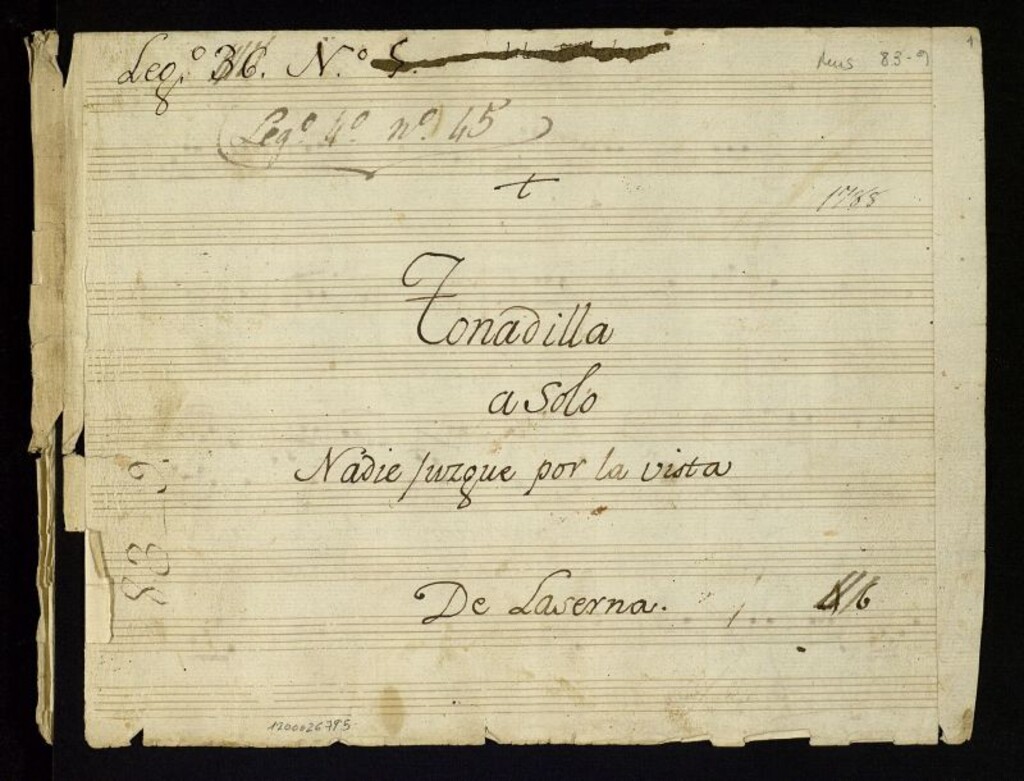 Leg.º 36. N.º 5.
Mus 83-9
1
Leg.º 4º nº. 45
+
1788
Tonadilla
a Solo
Nadie Juzgue por la vista
De Laserna.
83-9
1200026795